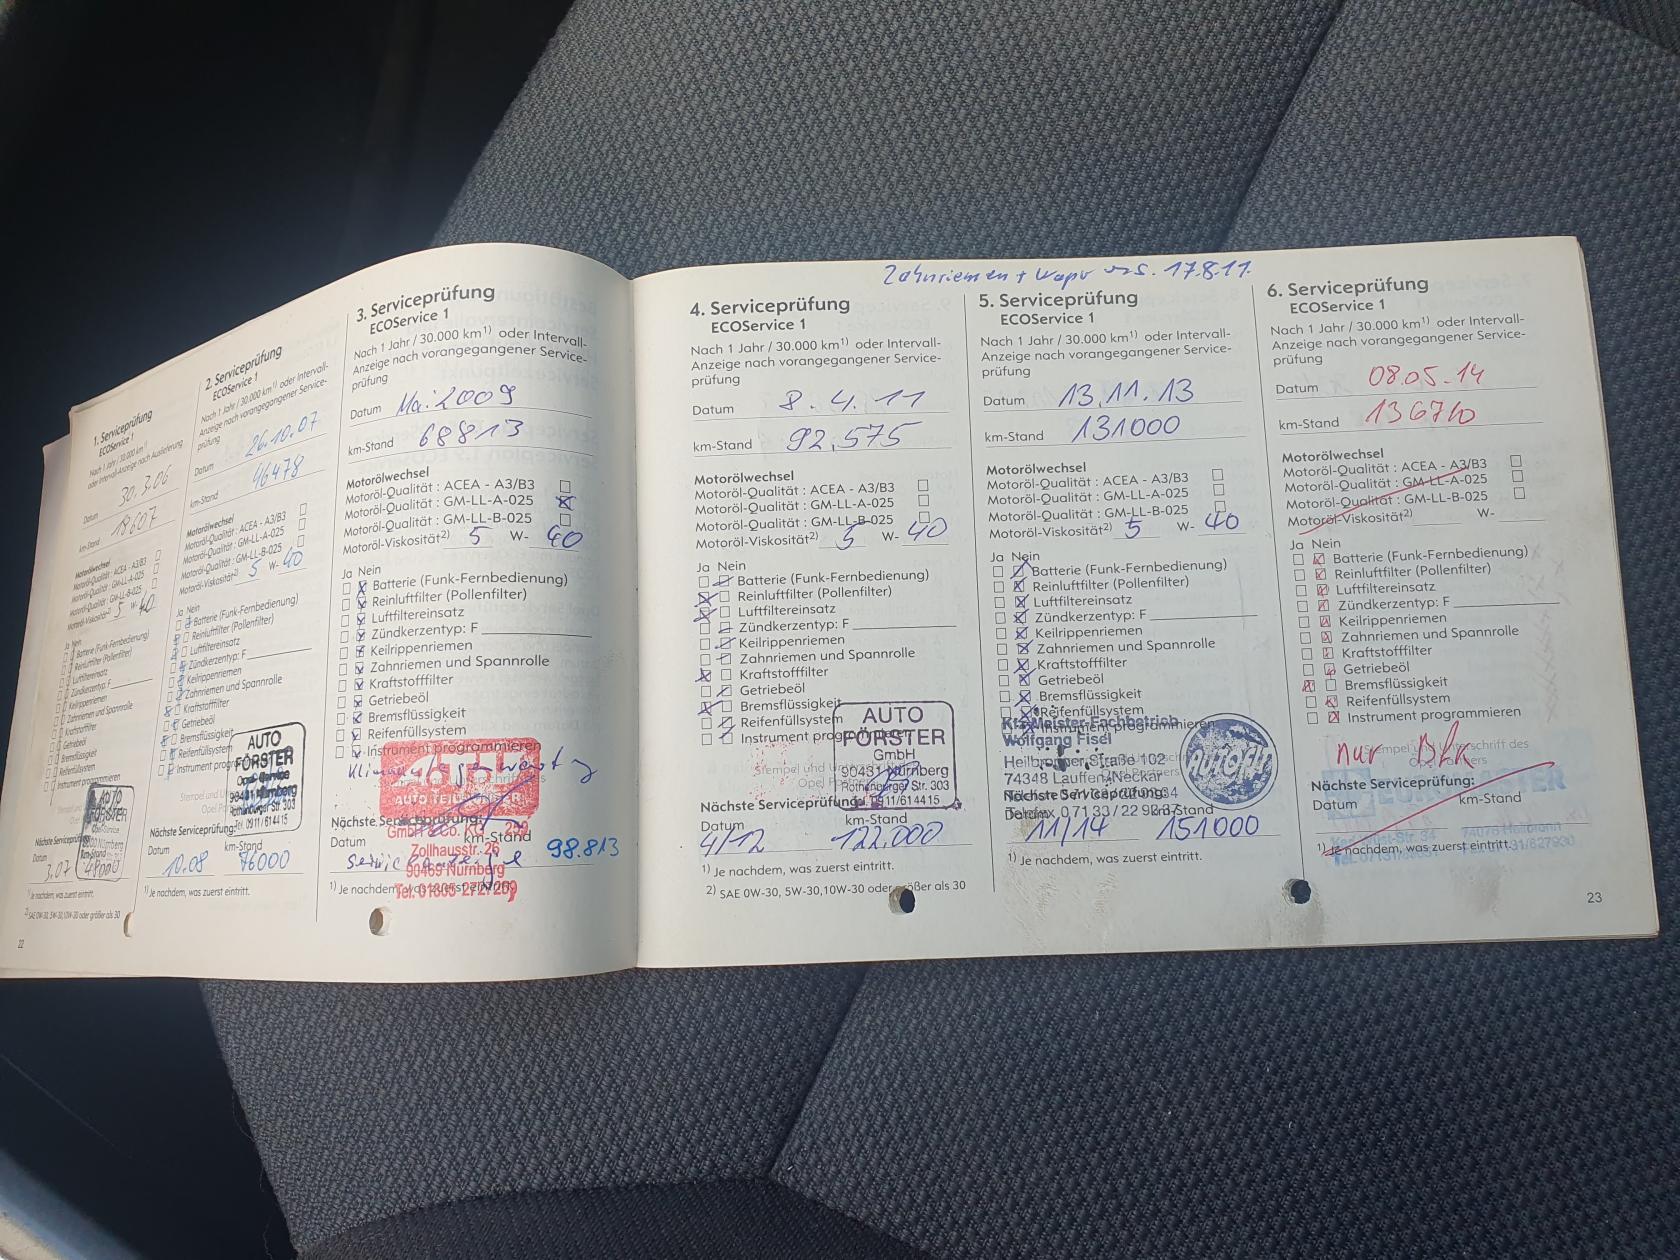 Zahnriemen + Wapu 17.8.11.
1. Serviceprüfung
ECOService 1
Nach 1 Jahr / 30.000 km¹⁾
oder Intervall-Anzeige nach Auslieferung
Datum 30.3.06
km-Stand 18607
Motorölwechsel
Motoröl-Qualität : ACEA - A3/B3
Motoröl-Qualität : GM-LL-A-025
Motoröl-Qualität : GM-LL-B-025
Motoröl-Viskosität²⁾ 5 W- 40
Ja Nein
Batterie (Funk-Fernbedienung)
Reinluftfilter (Pollenfilter)
Luftfiltereinsatz
Zündkerzentyp: F
Keilrippenriemen
Zahnriemen und Spannrolle
Kraftstofffilter
Getriebeöl
Bremsflüssigkeit
Reifenfüllsystem
Instrument programmieren
AUTO
FÖRSTER
Nächste Serviceprüfung:
Datum km-Stand
3.07 48000
¹⁾ Je nachdem, was zuerst eintritt.
²⁾ SAE 0W-30, 5W-30,10W-30 oder größer als 30
22
2. Serviceprüfung
ECOService 1
Nach 1 Jahr / 30.000 km¹⁾ oder Intervall-
Anzeige nach vorangegangener Service-
prüfung
Datum 26.10.07
km-Stand 46478
Motorölwechsel
Motoröl-Qualität : ACEA - A3/B3
Motoröl-Qualität : GM-LL-A-025
Motoröl-Qualität : GM-LL-B-025
Motoröl-Viskosität²⁾ 5 W- 40
Ja Nein
Batterie (Funk-Fernbedienung)
Reinluftfilter (Pollenfilter)
Luftfiltereinsatz
Zündkerzentyp: F
Keilrippenriemen
Zahnriemen und Spannrolle
Kraftstofffilter
Getriebeöl
Bremsflüssigkeit
Reifenfüllsystem
Instrument programmieren
AUTO
FÖRSTER
Opel-Service
90431 Nürnberg
Rothenburger Str. 303
Tel. 0911/61 44 15
Nächste Serviceprüfung:
Datum km-Stand
10.08 76000
¹⁾ Je nachdem, was zuerst eintritt.
3. Serviceprüfung
ECOService 1
Nach 1 Jahr / 30.000 km¹⁾ oder Intervall-
Anzeige nach vorangegangener Service-
prüfung
Datum Mai 2009
km-Stand 68813
Motorölwechsel
Motoröl-Qualität : ACEA - A3/B3
Motoröl-Qualität : GM-LL-A-025
Motoröl-Qualität : GM-LL-B-025
Motoröl-Viskosität²⁾ 5 W- 40
Ja Nein
Batterie (Funk-Fernbedienung)
Reinluftfilter (Pollenfilter)
Luftfiltereinsatz
Zündkerzentyp: F
Keilrippenriemen
Zahnriemen und Spannrolle
Kraftstofffilter
Getriebeöl
Bremsflüssigkeit
Reifenfüllsystem
Instrument programmieren
AUTO TEILE
GmbH & Co. KG
Nächste Serviceprüfung:
Datum km-Stand
Zollhausstr. 26
98.813
90469 Nürnberg
¹⁾ Je nachdem, was zuerst eintritt.
4. Serviceprüfung
ECOService 1
Nach 1 Jahr / 30.000 km¹⁾ oder Intervall-
Anzeige nach vorangegangener Service-
prüfung
Datum 8.4.11
km-Stand 92,575
Motorölwechsel
Motoröl-Qualität : ACEA - A3/B3
Motoröl-Qualität : GM-LL-A-025
Motoröl-Qualität : GM-LL-B-025
Motoröl-Viskosität²⁾ 5 W- 40
Ja Nein
Batterie (Funk-Fernbedienung)
Reinluftfilter (Pollenfilter)
Luftfiltereinsatz
Zündkerzentyp: F
Keilrippenriemen
Zahnriemen und Spannrolle
Kraftstofffilter
Getriebeöl
Bremsflüssigkeit
Reifenfüllsystem
Instrument programmieren
AUTO
FÖRSTER
GmbH
90431 Nürnberg
Rothenburger Str. 303
Tel. 0911/61 44 15
Nächste Serviceprüfung:
Datum km-Stand
4/12 122.000
¹⁾ Je nachdem, was zuerst eintritt.
²⁾ SAE 0W-30, 5W-30,10W-30 oder größer als 30
5. Serviceprüfung
ECOService 1
Nach 1 Jahr / 30.000 km¹⁾ oder Intervall-
Anzeige nach vorangegangener Service-
prüfung
Datum 13.11.13
km-Stand 131000
Motorölwechsel
Motoröl-Qualität : ACEA - A3/B3
Motoröl-Qualität : GM-LL-A-025
Motoröl-Qualität : GM-LL-B-025
Motoröl-Viskosität²⁾ 5 W- 40
Ja Nein
Batterie (Funk-Fernbedienung)
Reinluftfilter (Pollenfilter)
Luftfiltereinsatz
Zündkerzentyp: F
Keilrippenriemen
Zahnriemen und Spannrolle
Kraftstofffilter
Getriebeöl
Bremsflüssigkeit
Reifenfüllsystem
Instrument programmieren
Kfz-Meister-Fachbetrieb
Wolfgang Fisel
Heilbronner Straße 102
74348 Lauffen/Neckar
AUTOfit
Nächste Serviceprüfung:
Datum km-Stand
11/14 151000
¹⁾ Je nachdem, was zuerst eintritt.
6. Serviceprüfung
ECOService 1
Nach 1 Jahr / 30.000 km¹⁾ oder Intervall-
Anzeige nach vorangegangener Service-
prüfung
Datum 08.05.14
km-Stand 136710
Motorölwechsel
Motoröl-Qualität : ACEA - A3/B3
Motoröl-Qualität : GM-LL-A-025
Motoröl-Qualität : GM-LL-B-025
Motoröl-Viskosität²⁾ W-
Ja Nein
Batterie (Funk-Fernbedienung)
Reinluftfilter (Pollenfilter)
Luftfiltereinsatz
Zündkerzentyp: F
Keilrippenriemen
Zahnriemen und Spannrolle
Kraftstofffilter
Getriebeöl
Bremsflüssigkeit
Reifenfüllsystem
Instrument programmieren
nur
Stempel und Unterschrift des
Opel Partners
EUROMASTER
Nächste Serviceprüfung:
Datum km-Stand
¹⁾ Je nachdem, was zuerst eintritt.
23